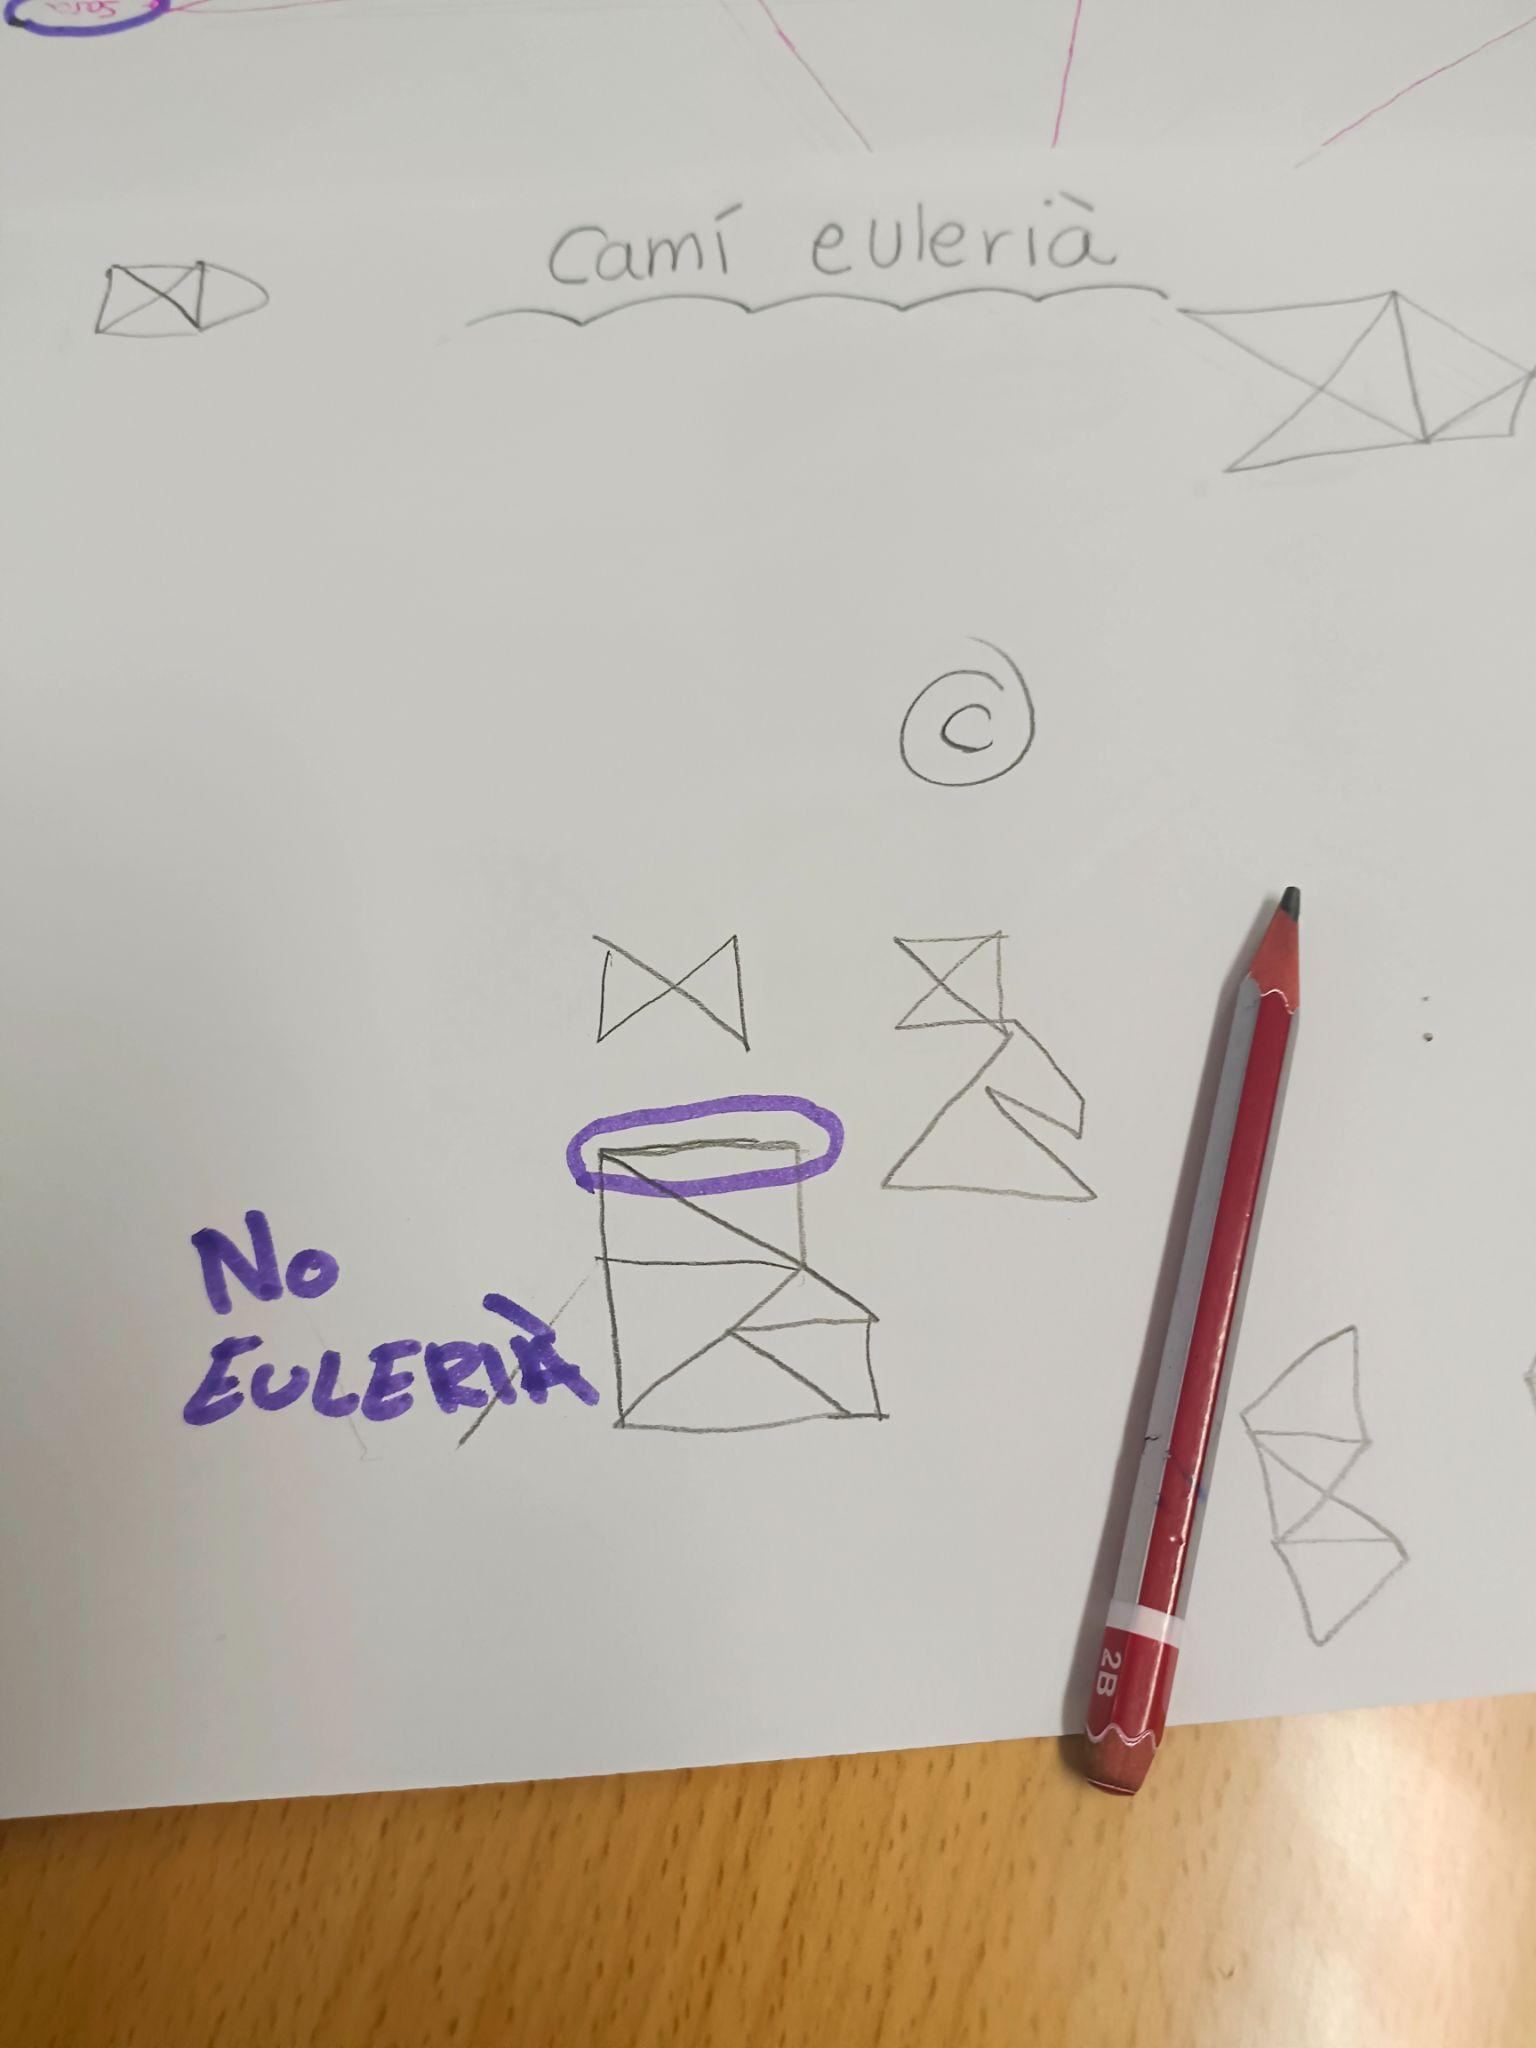 Sara
Camí eulerià
C
No
EULERIÀ
2B